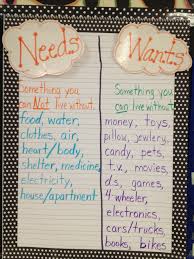 Needs
Wants
Something you
can Not live without.
food, water,
clothes, air,
heart/body,
shelter, medicine,
electricity,
house/apartment
Something you
can live without.
money, toys,
pillow, jewlery,
candy, pets,
t.v., movies,
d.s., games,
4 wheeler,
electronics,
cars/trucks,
books, bikes